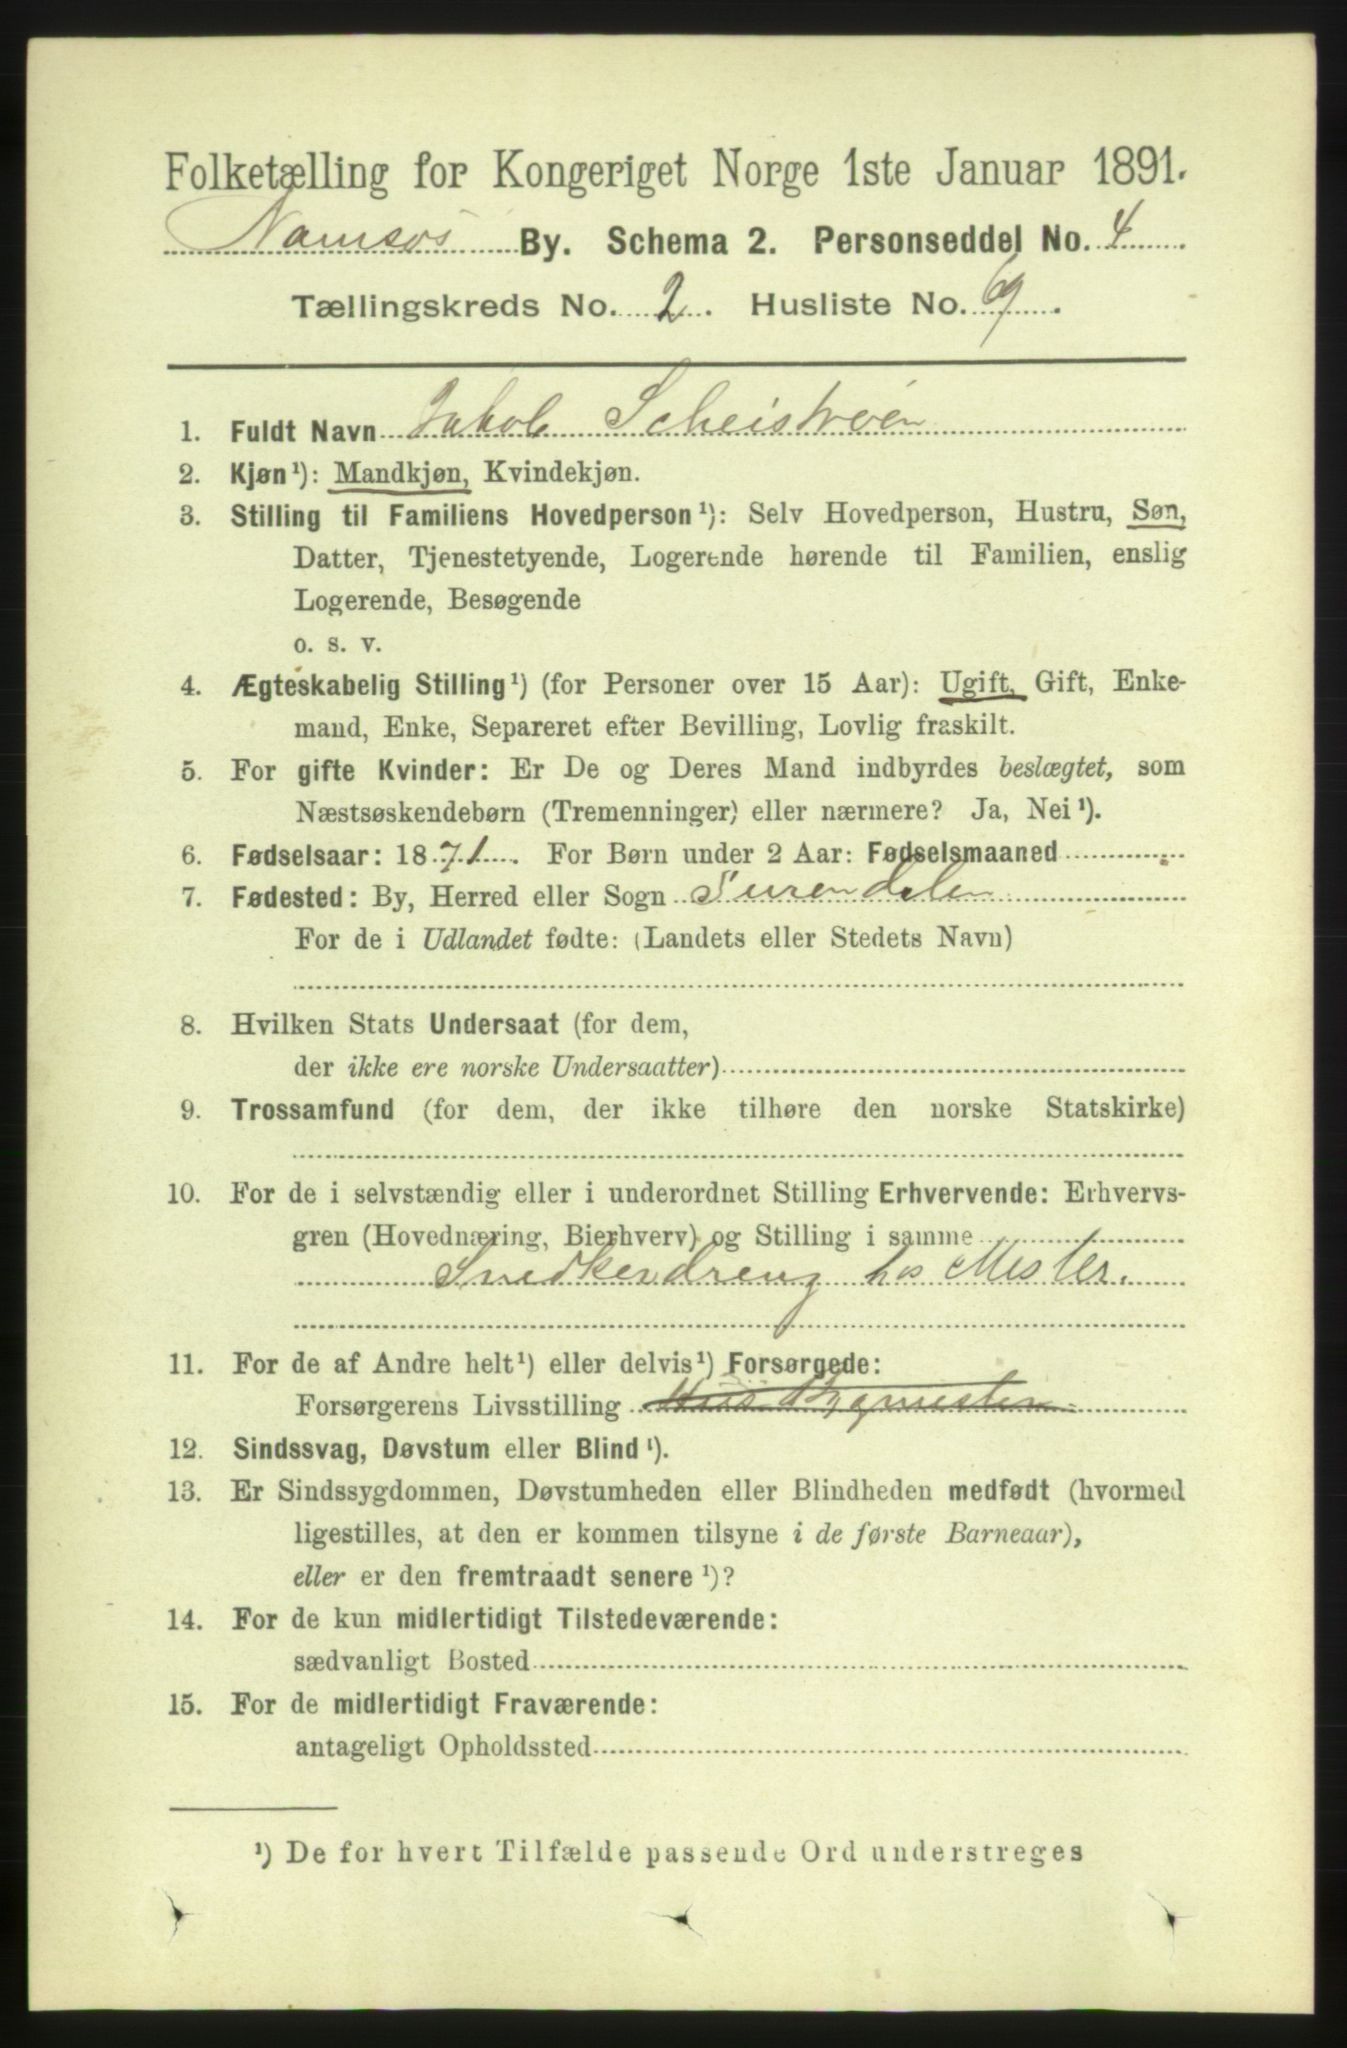 Folketælling for Kongeriget Norge 1ste Januar 1891.
Namsos By. Schema 2. Personseddel No. 4
Tællingskreds No. 2. Husliste No. 69.
1. Fuldt Navn Jakob
2. Kjøn¹): Mandkjøn, Kvindekjøn.
3. Stilling til Familiens Hovedperson¹): Selv Hovedperson, Hustru, Søn,
Datter, Tjenestetyende, Logerende hørende til Familien, enslig
Logerende, Besøgende
o. s. v.
4. Ægteskabelig Stilling¹) (for Personer over 15 Aar): Ugift, Gift, Enke-
mand, Enke, Separeret efter Bevilling, Lovlig fraskilt.
5. For gifte Kvinder: Er De og Deres Mand indbyrdes beslægtet, som
Næstsøskendebørn (Tremenninger) eller nærmere? Ja, Nei¹).
6. Fødselsaar: 1871. For Børn under 2 Aar: Fødselsmaaned
7. Fødested: By, Herred eller Sogn Surendalen
For de i Udlandet fødte: (Landets eller Stedets Navn)
8. Hvilken Stats Undersaat (for dem,
der ikke ere norske Undersaatter)
9. Trossamfund (for dem, der ikke tilhøre den norske Statskirke)
10. For de i selvstændig eller i underordnet Stilling Erhvervende: Erhvervs-
gren (Hovednæring, Bierhverv) og Stilling i samme
Snedkerdreng hos Mester.
11. For de af Andre helt¹) eller delvis¹) Forsørgede:
Forsørgerens Livsstilling Huus Bygmester
12. Sindssvag, Døvstum eller Blind¹).
13. Er Sindssygdommen, Døvstumheden eller Blindheden medfødt (hvormed
ligestilles, at den er kommen tilsyne i de første Barneaar),
eller er den fremtraadt senere¹)?
14. For de kun midlertidigt Tilstedeværende:
sædvanligt Bosted
15. For de midlertidigt Fraværende:
antageligt Opholdssted
¹) De for hvert Tilfælde passende Ord understreges